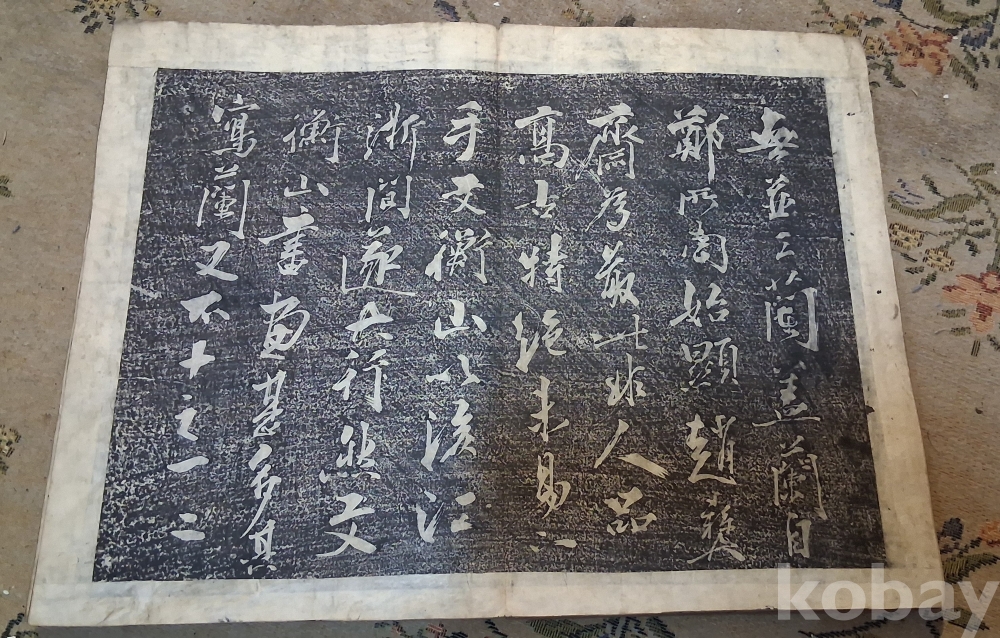 無並工蘭盖蘭自
鄭所南始顯趙彝
齋為最此非人品
高古特絶未易下
手文衡山以後江
浙間遂大行然文
衡山書畫甚多其
寫蘭又不十之一二
kobay